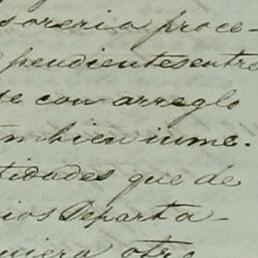 soreria proce-
pendientes entre
se con arreglo
tambien inme-
tidades que de
rios Departa-
uiera otro